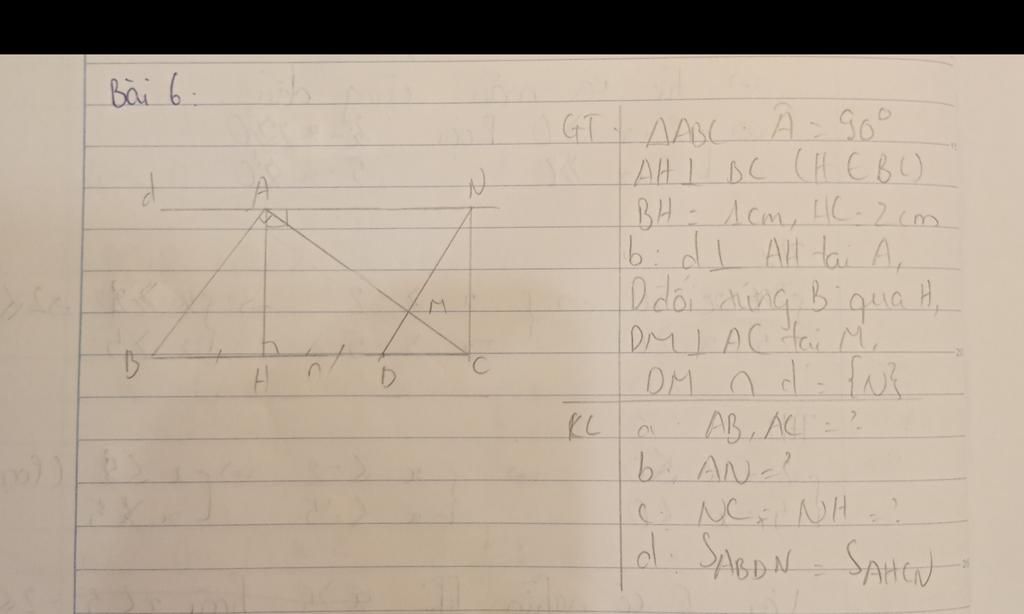 Bài 6:
d A N
M
B H D C
GT ΔABC. Â = 90°
AH ⊥ BC (H ∈ BC)
BH = 1cm, HC = 2cm
b: d ⊥ AH tại A,
D đối xứng B qua H,
DM ⊥ AC tại M,
DM ∩ d = {N}
KL a. AB, AC = ?
b. AN = ?
c. NC, NH = ?
d. S_ABDN = S_AHCN